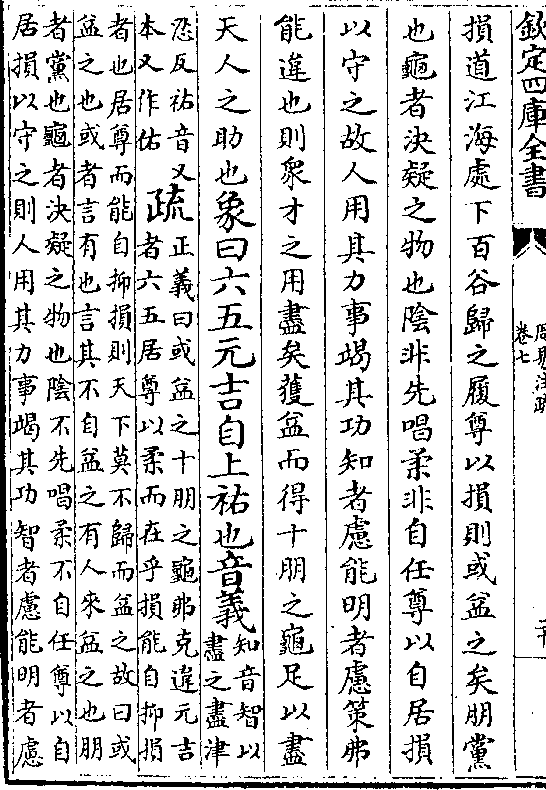 欽定四庫全書
周易注疏
卷七
損道江海處下百谷歸之履尊以損則或益之矣朋黨
也龜者決疑之物也陰非先唱柔非自任尊以自居損
以守之故人用其力事竭其功知者慮能明者慮策弗
能違也則衆才之用盡矣獲益而得十朋之龜足以盡
天人之助也象曰六五元吉自上祐也音義
知音智以
盡之盡津
忍反祐音又
本又作佑
疏
正義曰或益之十朋之龜弗克違元吉
者六五居尊以柔而在乎損能自抑損
者也居尊而能自抑損則天下莫不歸而益之故曰或
益之也或者言有也言其不自益之有人來益之也朋
者黨也龜者決疑之物也陰不先唱柔不自任尊以自
居損以守之則人用其力事竭其功智者慮能明者慮